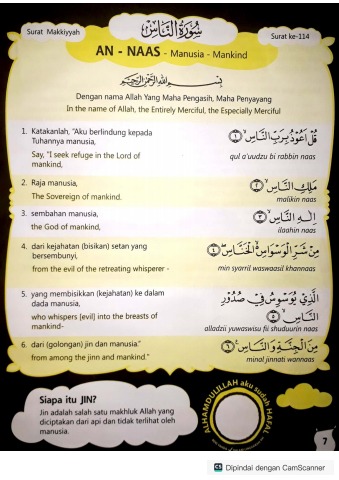 Surat Makkiyyah
سُوْرَةُ النَّاسِ
Surat ke-114
AN - NAAS - Manusia - Mankind
بِسْمِ اللهِ الرَّحْمٰنِ الرَّحِيْمِ
Dengan nama Allah Yang Maha Pengasih, Maha Penyayang
In the name of Allah, the Entirely Merciful, the Especially Merciful
1. Katakanlah, "Aku berlindung kepada
Tuhannya manusia,
Say, "I seek refuge in the Lord of
mankind,
قُلْ اَعُوْذُ بِرَبِّ النَّاسِۙ ۝١
qul a'uudzu bi rabbin naas
2. Raja manusia,
The Sovereign of mankind.
مَلِكِ النَّاسِۙ ۝٢
malikin naas
3. sembahan manusia,
the God of mankind,
اِلٰهِ النَّاسِۙ ۝٣
ilaahin naas
4. dari kejahatan (bisikan) setan yang
bersembunyi,
from the evil of the retreating whisperer -
مِنْ شَرِّ الْوَسْوَاسِ ەۙ الْخَنَّاسِۖ ۝٤
min syarril waswaasil khannaas
5. yang membisikkan (kejahatan) ke dalam
dada manusia,
who whispers [evil] into the breasts of
mankind-
الَّذِيْ يُوَسْوِسُ فِيْ صُدُوْرِ
النَّاسِۙ ۝٥
alladzii yuwaswisu fii shuduurin naas
6. dari (golongan) jin dan manusia."
from among the jinn and mankind."
مِنَ الْجِنَّةِ وَالنَّاسِ ۝٦
minal jinnati wannaas
Siapa itu JIN?
Jin adalah salah satu makhluk Allah yang
diciptakan dari api dan tidak terlihat oleh
manusia.
ALHAMDULILLAH aku sudah HAFAL
7
CS Dipindai dengan CamScanner